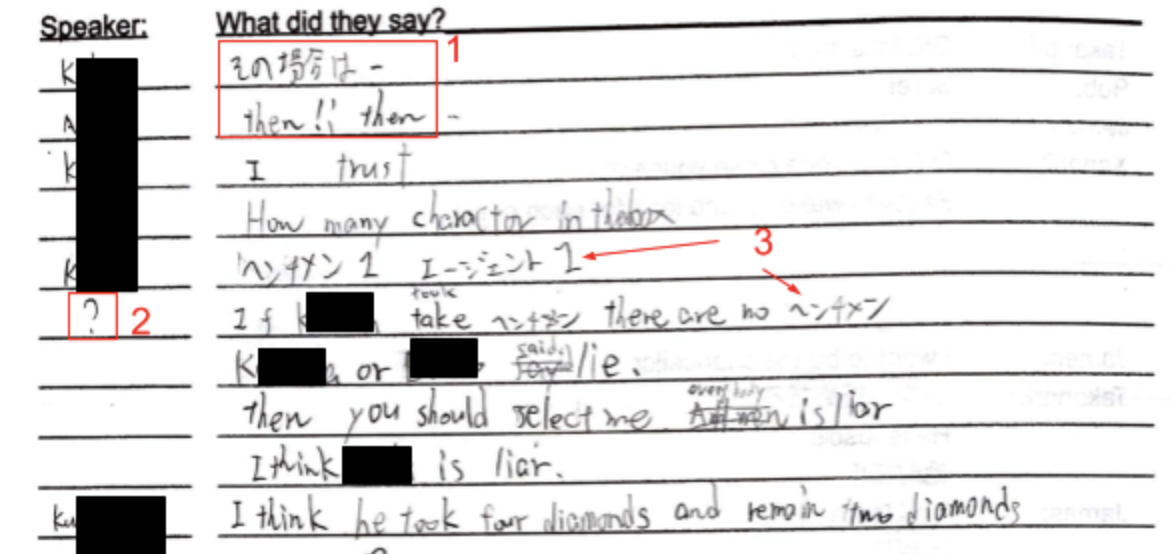 Speaker: What did they say?
K その場合は - 1
A then!; then -
K I trust
How many charactor in thebox
K ヘンチメン 1 エージェント 1 3
? 2 If k took take ヘンチメン there are no ヘンチメン
K or said, say lie.
then you should select me everybody is liar
I think is liar.
Ku I think he took four diamonds and remain two diamonds